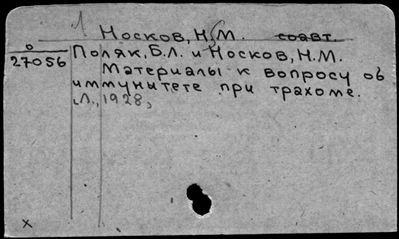 1
Носков, Н. М. соавт.
о
27056
Поляк, Б.Л. и Носков, Н.М.
Материалы к вопросу об
иммунитете при трахоме.
Л., 1928,
x